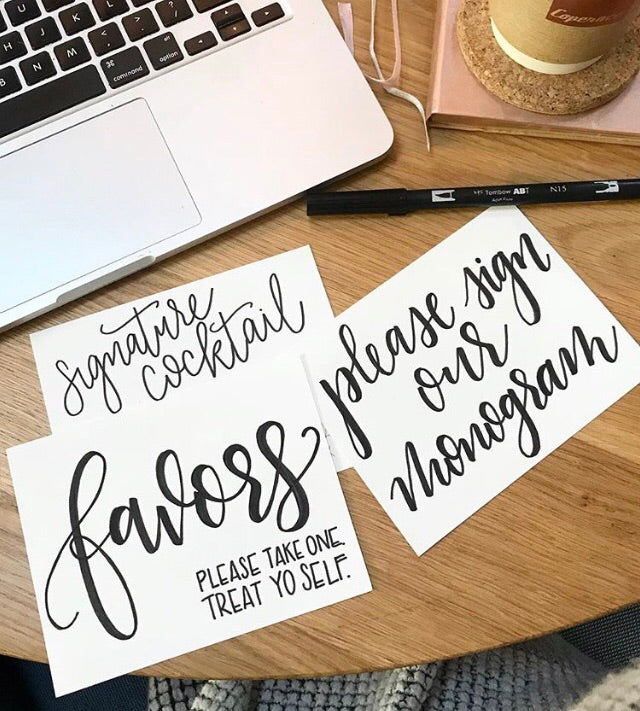 U
I
O
P
H
J
K
L
B
N
M
command
option
Tombow ABT
N15
signature
cocktail
please sign
our
monogram
favors
PLEASE TAKE ONE.
TREAT YO SELF.